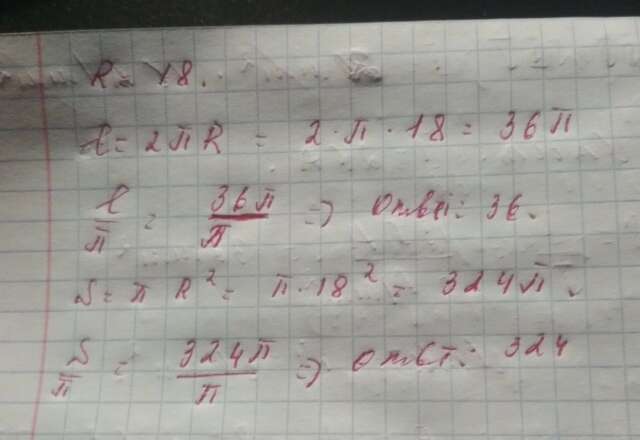 R = 18.
ℓ = 2πR = 2·π·18 = 36π
ℓ/π = 36π/π ⇒ ответ: 36.
S = π R² = π·18² = 324π.
S/π = 324π/π ⇒ ответ: 324